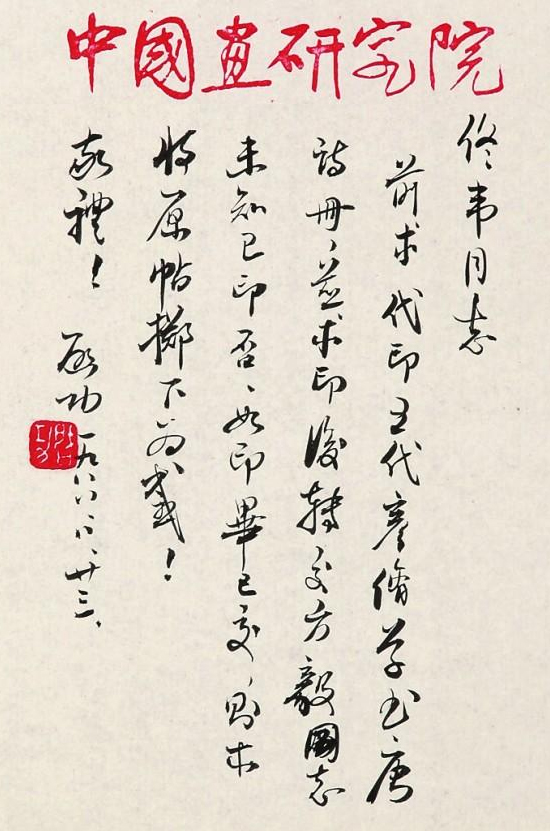 中國畫研究院
佟韦同志
前求代印五代彦脩草书唐
诗册、並求印後轉交方毅同志
未知已印否、如印畢已交、则求
将原帖擲下为感!
敬禮! 启功 一九八八、八、廿三、